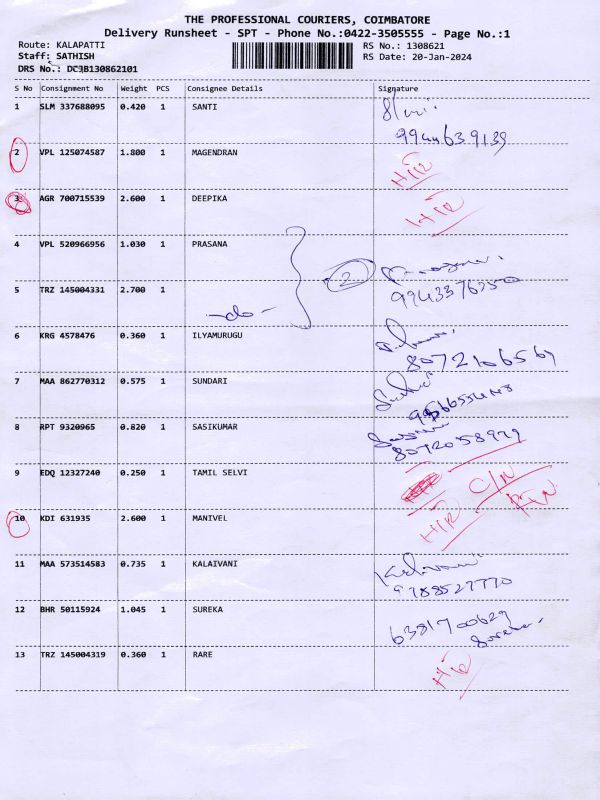 THE PROFESSIONAL COURIERS, COIMBATORE
Delivery Runsheet - SPT - Phone No.:0422-3505555 - Page No.:1
Route: KALAPATTI RS No.: 1308621
Staff: SATHISH RS Date: 20-Jan-2024
DRS No.: DC9B130862101
S No Consignment No Weight PCS Consignee Details Signature
1 SLM 337688095 0.420 1 SANTI
9944639139
2 VPL 125074587 1.800 1 MAGENDRAN
3 AGR 700715539 2.600 1 DEEPIKA
4 VPL 520966956 1.030 1 PRASANA
2
5 TRZ 145004331 2.700 1
-do-
9943376250
6 KRG 4578476 0.360 1 ILYAMURUGU
8072106569
7 MAA 862770312 0.575 1 SUNDARI
8 RPT 9320965 0.820 1 SASIKUMAR
8072058979
9 EDQ 12327240 0.250 1 TAMIL SELVI C/N
10 KDI 631935 2.600 1 MANIVEL
11 MAA 573514583 0.735 1 KALAIVANI Kalaivani
9788527770
12 BHR 50115924 1.045 1 SUREKA
6381700629
13 TRZ 145004319 0.360 1 RARE